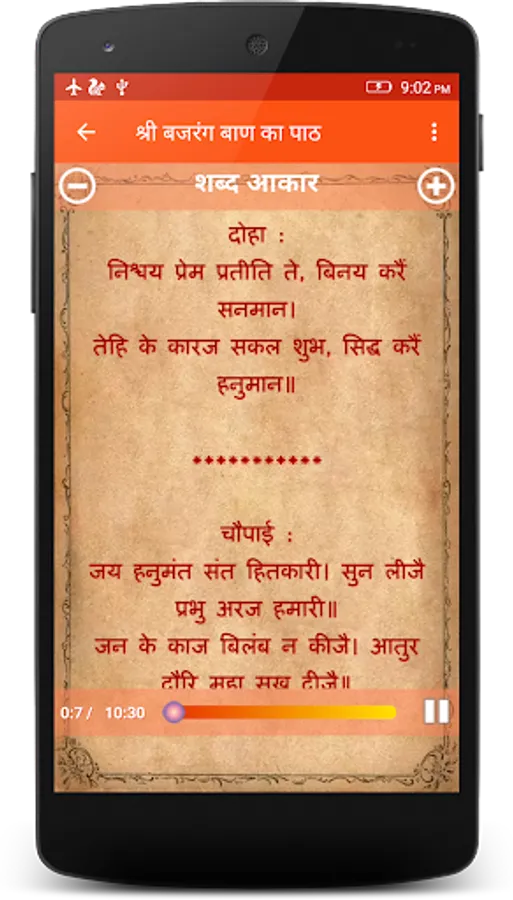 9:02 PM
श्री बजरंग बाण का पाठ
शब्द आकार
दोहा :
निश्चय प्रेम प्रतीति ते, बिनय करैं
सनमान।
तेहि के कारज सकल शुभ, सिद्ध करैं
हनुमान॥
चौपाई :
जय हनुमंत संत हितकारी। सुन लीजै
प्रभु अरज हमारी॥
जन के काज बिलंब न कीजै। आतुर
दौरि महा सुख दीजै॥
0:7 / 10:30